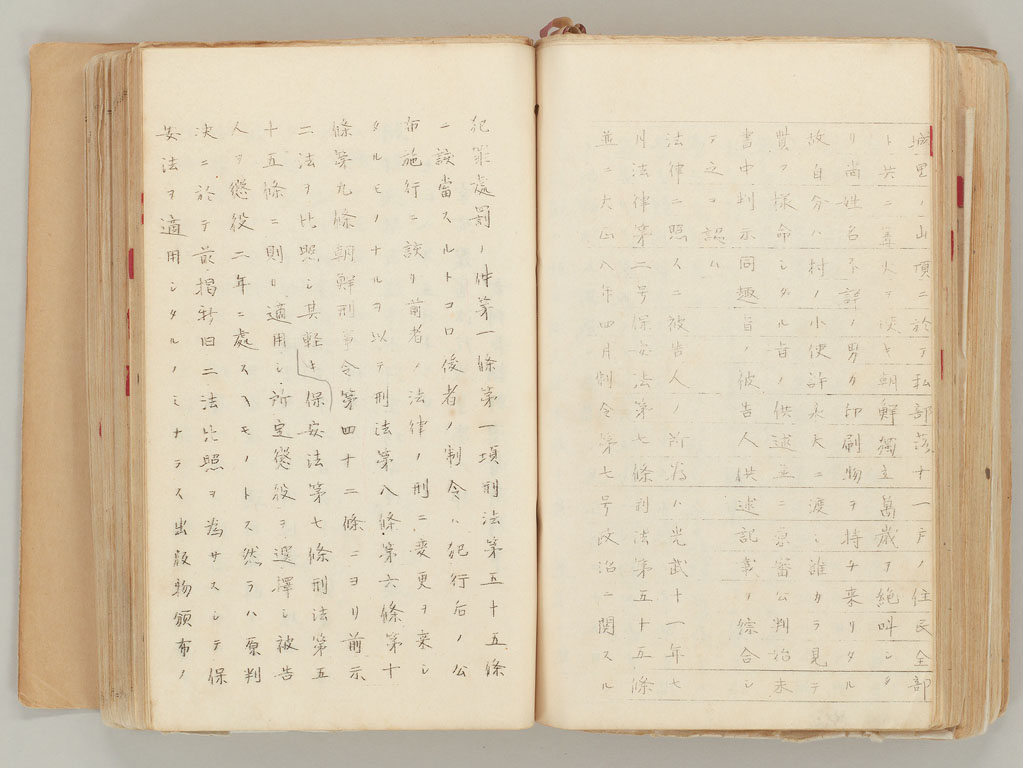 城里ノ山頂ニ於テ払部落十一戸ノ住民全部
ト共ニ篝火ヲ焚キ朝鮮獨立萬歳ヲ絶叫シ
リ尚姓名不詳ノ男カ印刷物ヲ持チ来リタル
故自分ハ村ノ小使許永大ニ渡シ誰カラ見テ
貰フ様命シタル旨ノ供述並ニ原審公判始末
書中判示同趣旨ノ被告人供述記載ノ綜合シ
テ之ヲ認ム
法律ニ照スニ被告人ノ所為ハ光武十一年七
月法律第二号保安法第七條刑法第五十五條
並ニ大正八年四月制令第七号政治ニ関スル
犯罪處罰ノ件第一條第一項刑法第五十五條
ニ該當スルトコロ後者ノ制令ハ犯行后ノ公
布施行ニ該リ前者ノ法律ノ刑ニ変更ヲ来シ
タルモノナルヲ以テ刑法第八條第六條第十
條第九條朝鮮刑事令第四十二條ニヨリ前示
二法ヲ比照シ其軽キ保安法第七條刑法第五
十五條ニ則リ適用シ所定懲役テ選擇シ被告
人ヲ懲役二年ニ處スヘキモノトス然ラハ原判
決ニ於テ前掲新旧二法比照ヲ為サスシテ保
安法ヲ適用シタルノミナラス出版物頒布ノ